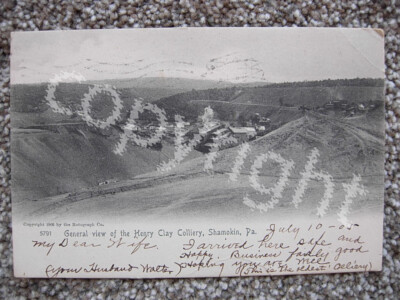 copyright
Copyright 1905 by the Rotograph Co.
8791 General view of the Henry Clay Colliery, Shamokin, Pa.
July 10-05
My Dear Wife. I arrived here safe and
Happy. Business fairly good
Hoping you are well
(your Husband Walter)
(This is the oldest Coliery)